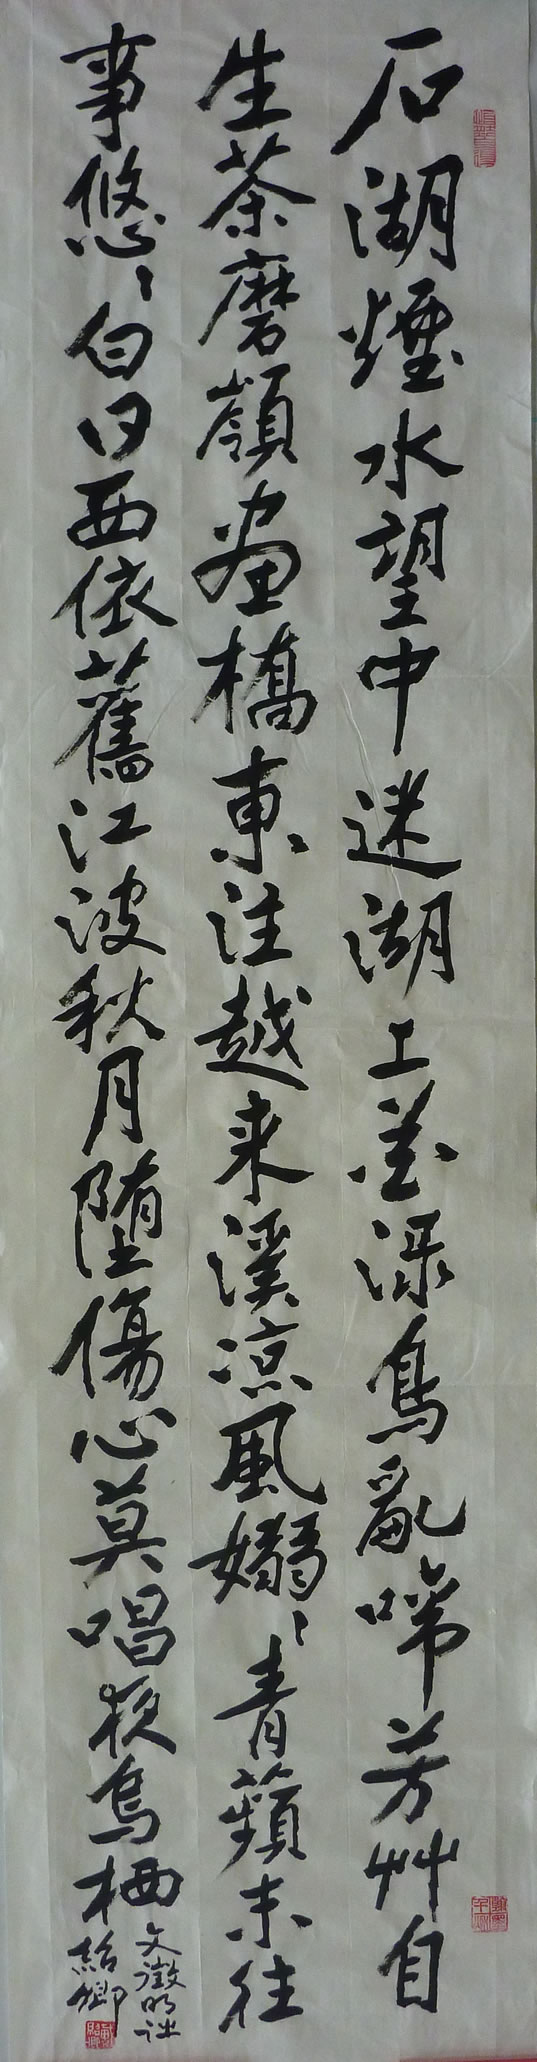 石湖煙水望中迷湖上花深鳥亂啼芳艸自
生茶磨嶺畫橋東注越来溪涼風嫋〻青蘋末往
事悠〻白日西依舊江波秋月墮傷心莫唱夜烏栖
文徵明詩